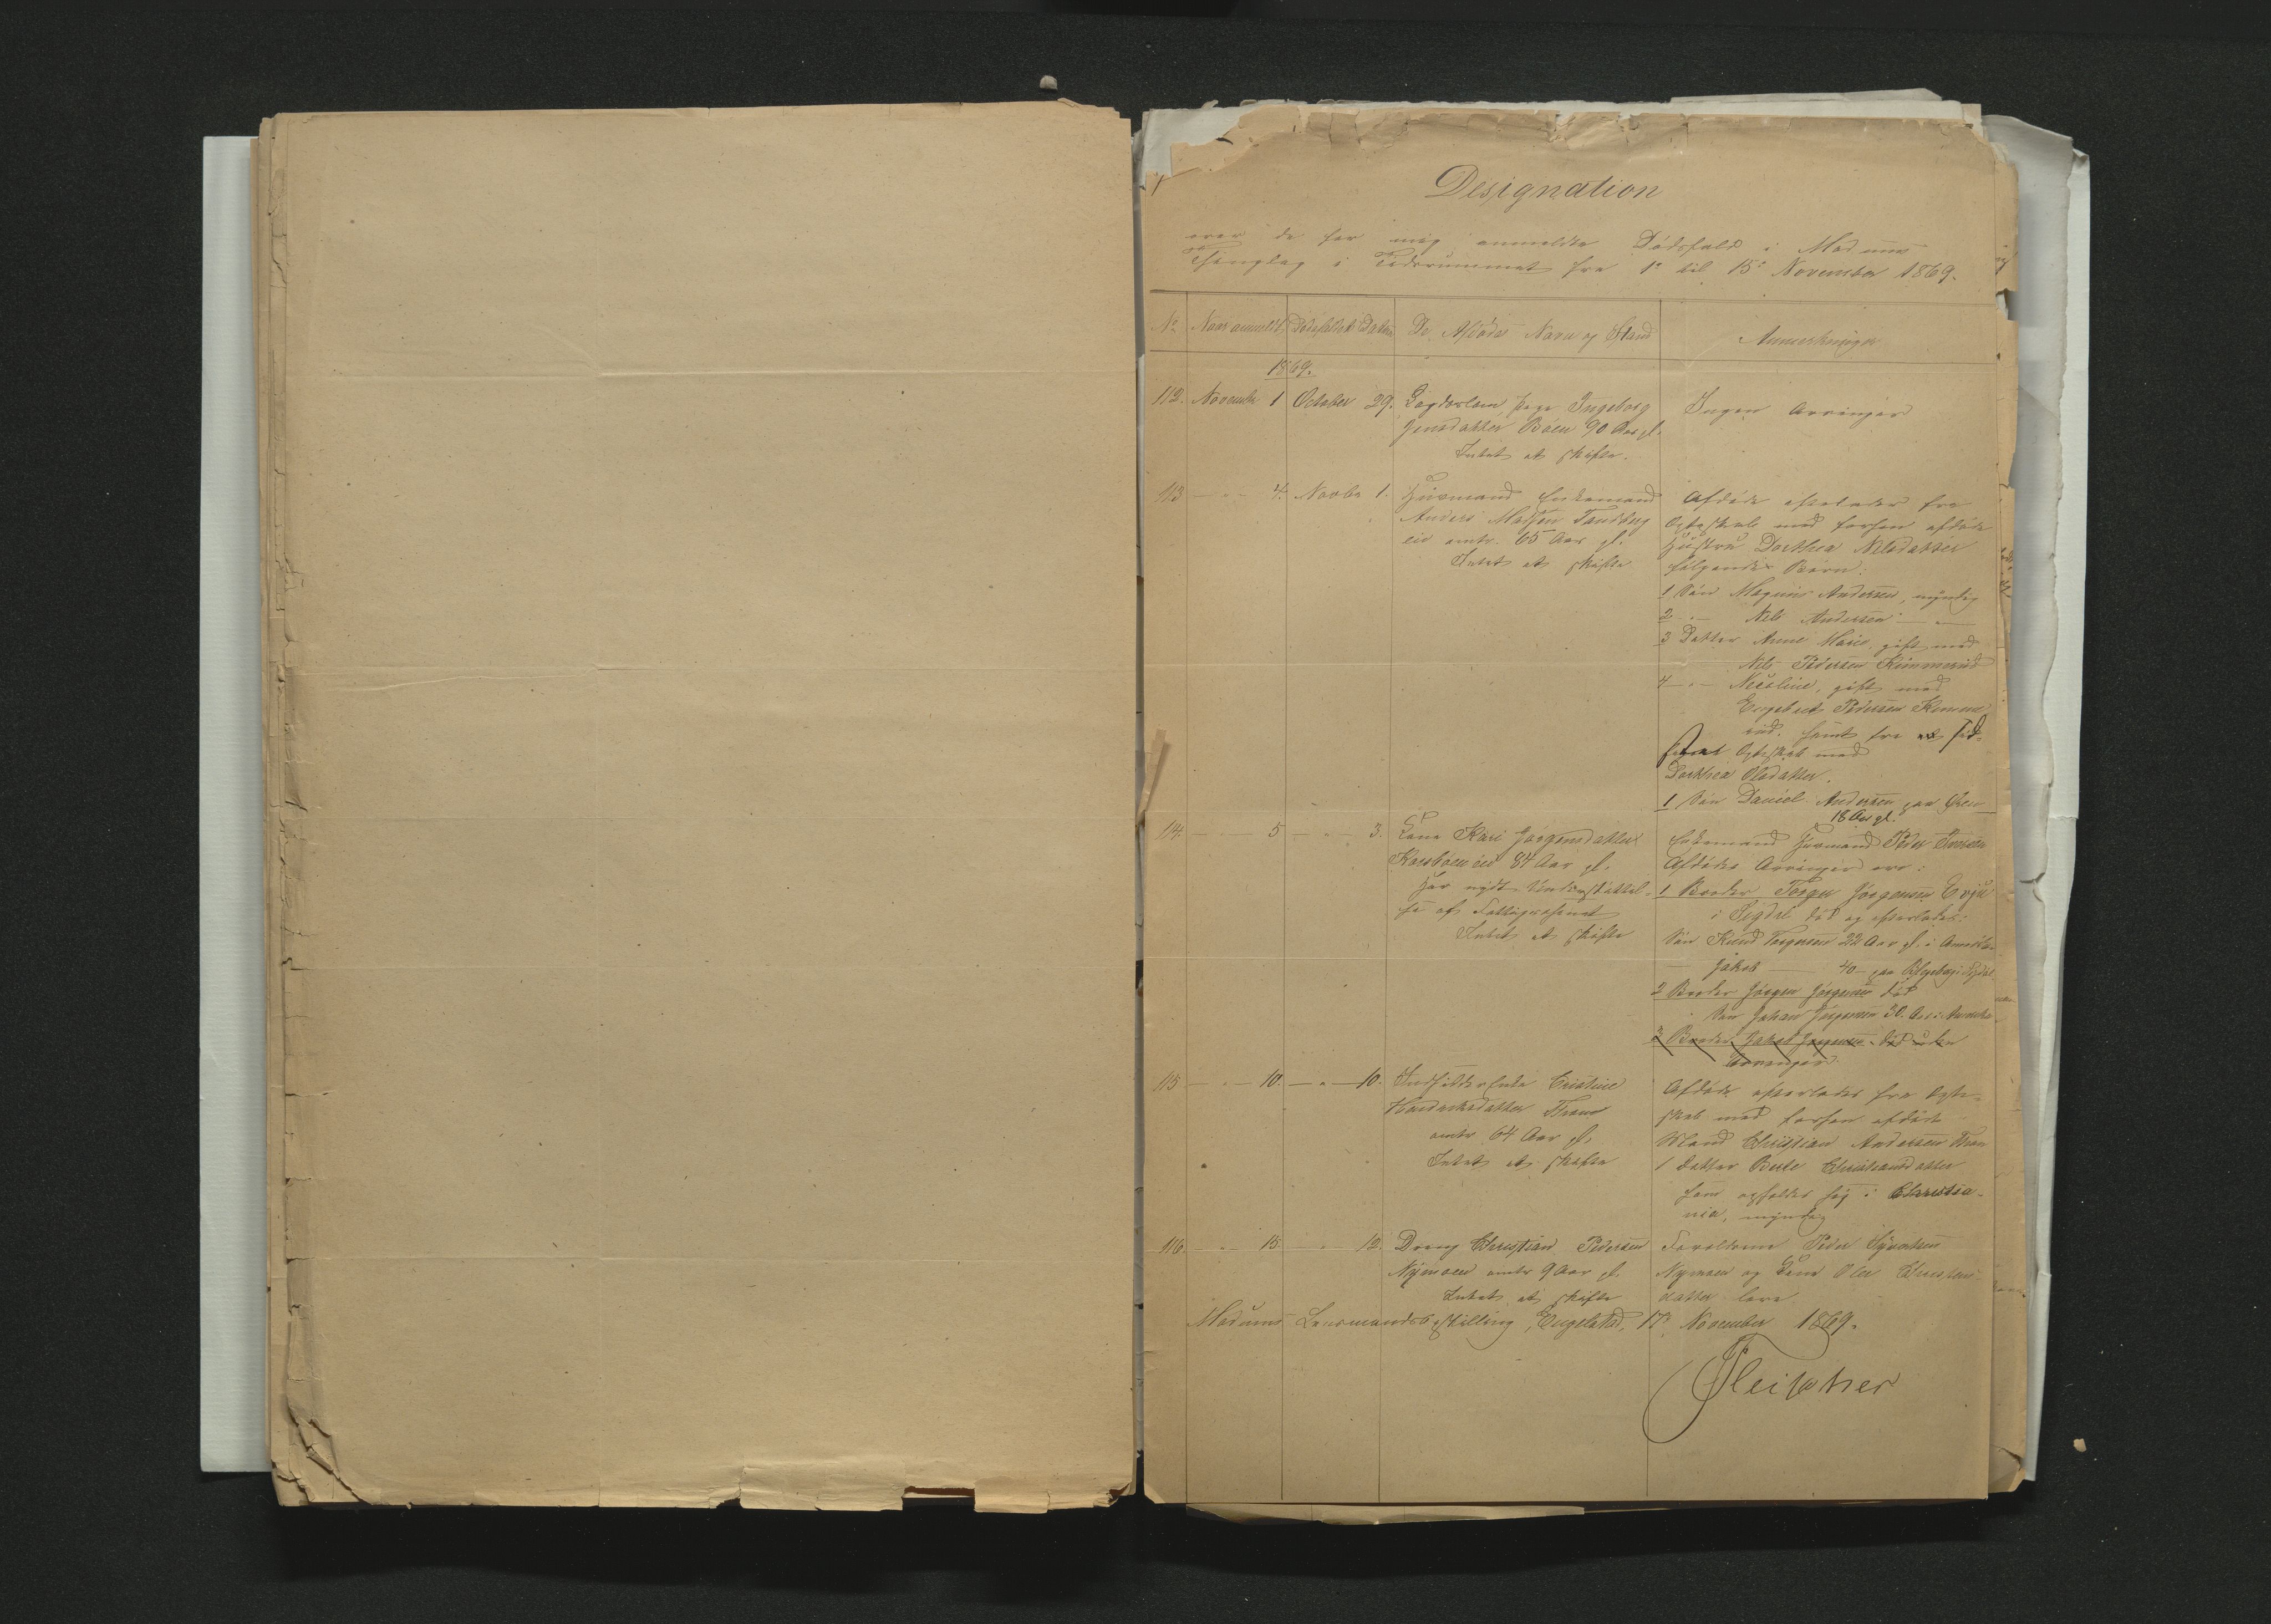 Designation
over de for mig anmeldte Dødsfald i Modums
Thinglag i Tidsrummet fra 1e til 15e November 1869.
No Naar anmeldt Dødsfaldets Datum De Afdødes Navn og Stand Anmærkninger
1869.
112. November 1 October 29. Ingeborg
Jensdatter Boen 90 Aar gl.
Intet at skifte.
Ingen Arvinger
113 - " - 4. Novbr 1. Huusmand Enkemand
Anders Madsen Tandberg
eie omtr. 65 Aar gl.
Intet at skifte
Afdøde efterlader fra
Egteskab med forhen afdøde
Hustru Dorthea Nilsdatter
følgende Børn:
1 Søn Magnus Andersen, myndig
2 - " - Nils Andersen - " -
3 Datter Anne Marie, gift med
Nils Pedersen Kimmerud
4 - " - Nicoline, gift med
Engebret Pedersen Kimme
rud, samt fra
Egteskab med
Dorthea Olsdatter.
1 Søn Daniel Andersen paa
18 Aar gl.
114. - " - 5 - " - 3. Kone Kari Jørgensdatter
Korsboen eie 84 Aar gl.
Har nydt Understøttel-
se af Fattigvæsenet
Intet at skifte
Enkemand Huusmand Peder Iversen
Afdødes Arvinger ere:
1 Broder Torger Jørgensen Evju
i Sigdal død og efterladt:
Søn Knud Torgersen 22 Aar gl. i Amerika
- Jakob - 40 - paa
2 Broder Jørgen Jørgensen død
Søn Johan Jørgensen 30 Aar i Amerika
3 Broder Jakob Jørgensen død uden
Arvinger.
115 - " - 10. - " - 10. Indsidder Enke Cristine
Hendriksdatter Thron
omtr 64 Aar gl.
Intet at skifte
Afdøde efterlader fra Egte-
skab med forhen afdøde
Mand Christian Andersen Thron
1 Datter Berte Christiansdatter
som opholder sig i Christia-
nia, myndig
116. - " - 15 - " - 12. Dreng Christian Pedersen
Nymoen omtr 9 Aar gl.
Intet at skifte
Forældrene Peder Syvertsen
Nymoen og Kone Olea Christens-
datter leve
Modums Lensmandsbestilling, Engelstad, 17e November 1869.
Fleischer